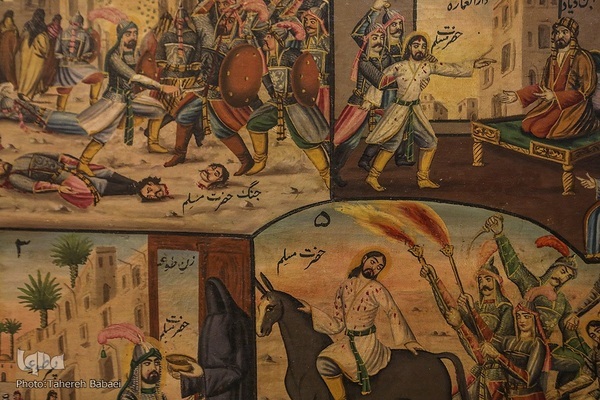 دارالعماره
حضرت مسلم
جنگ حضرت مسلم
۵
حضرت مسلم
۳
زن طوعه
حضرت مسلم
iqna
Photo: Tahereh Babaei